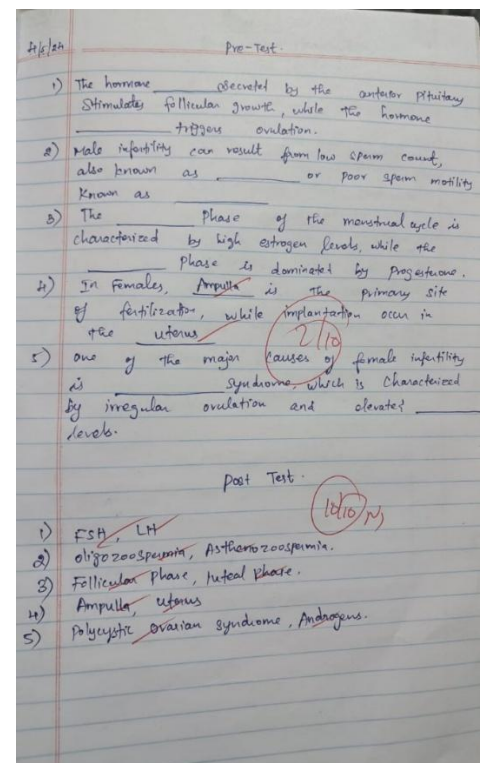 4/5/24
Pre-Test.
1) The hormone ________ secreted by the anterior Pituitary
Stimulates follicular growth, while the hormone
________ triggers ovulation.
2) Male infertility can result from low sperm count,
also known as ________ or poor sperm motility
Known as ________
3) The ________ Phase of the menstrual cycle is
characterized by high estrogen levels, while the
________ Phase is dominated by Progesterone.
4) In Females, Ampulla is the primary site
of fertilization, while implantation occur in
the uterus
2/10
5) One of the major causes of female infertility
is ________ Syndrome, which is Characterized
by irregular ovulation and elevated ________
levels.
Post Test.
10/10
1) FSH, LH
2) oligozoospermia, Asthenozoospermia.
3) Follicular Phase, luteal Phase.
4) Ampulla, uterus
5) Polycystic Ovarian syndrome, Androgens.